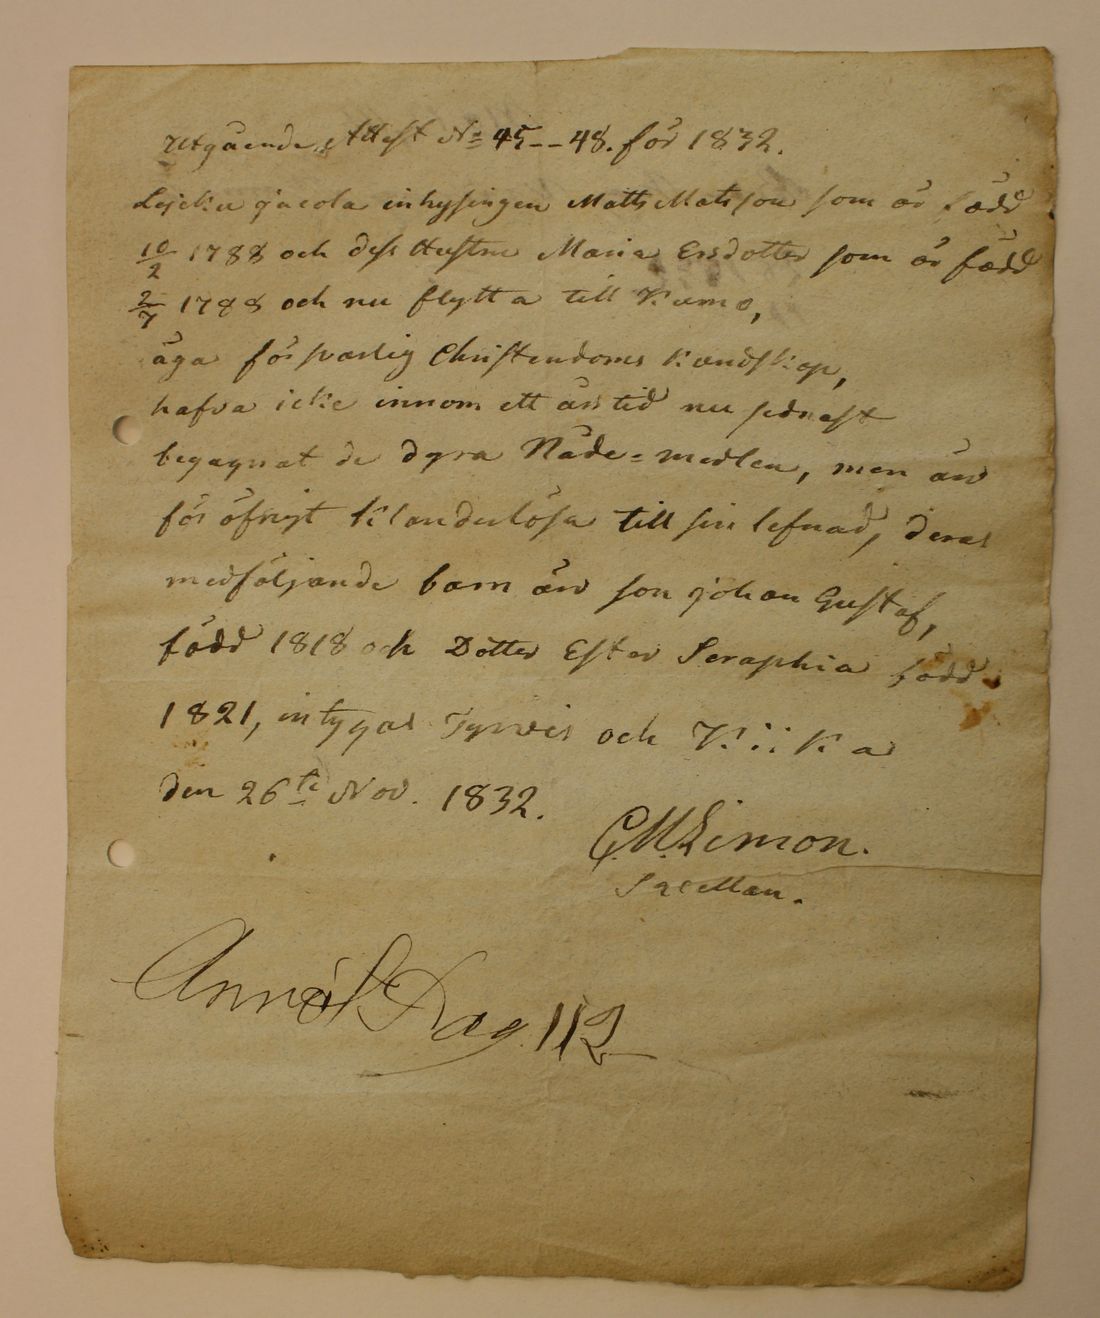 Utgående Attest No 45--48. för 1832.
inhysingen Matts Matsson som är född
10/2 1788 och dess Hustru Maria Ersdotter som är född
2/7 1788 och nu flytta till Kumo,
äga försvarlig Christendoms Kundskap,
hafva icke innom ett års tid nu sednast
begagnat de dyra Nåde=medlen, men äro
för öfrigt Klanderlösa till sin lefnad, deras
medföljande barn äro son Johan Gustaf,
född 1818 och Dotter Ester Seraphia född
1821, intygas Tyrvis och Kiika
den 26te Nov. 1832.
C.M. Limon.
Sacellan.
Annot Pag. 112